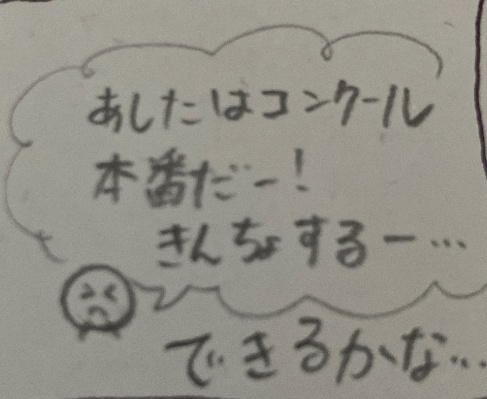 あしたはコンクール
本番だー!
きんちょするー…
できるかな…